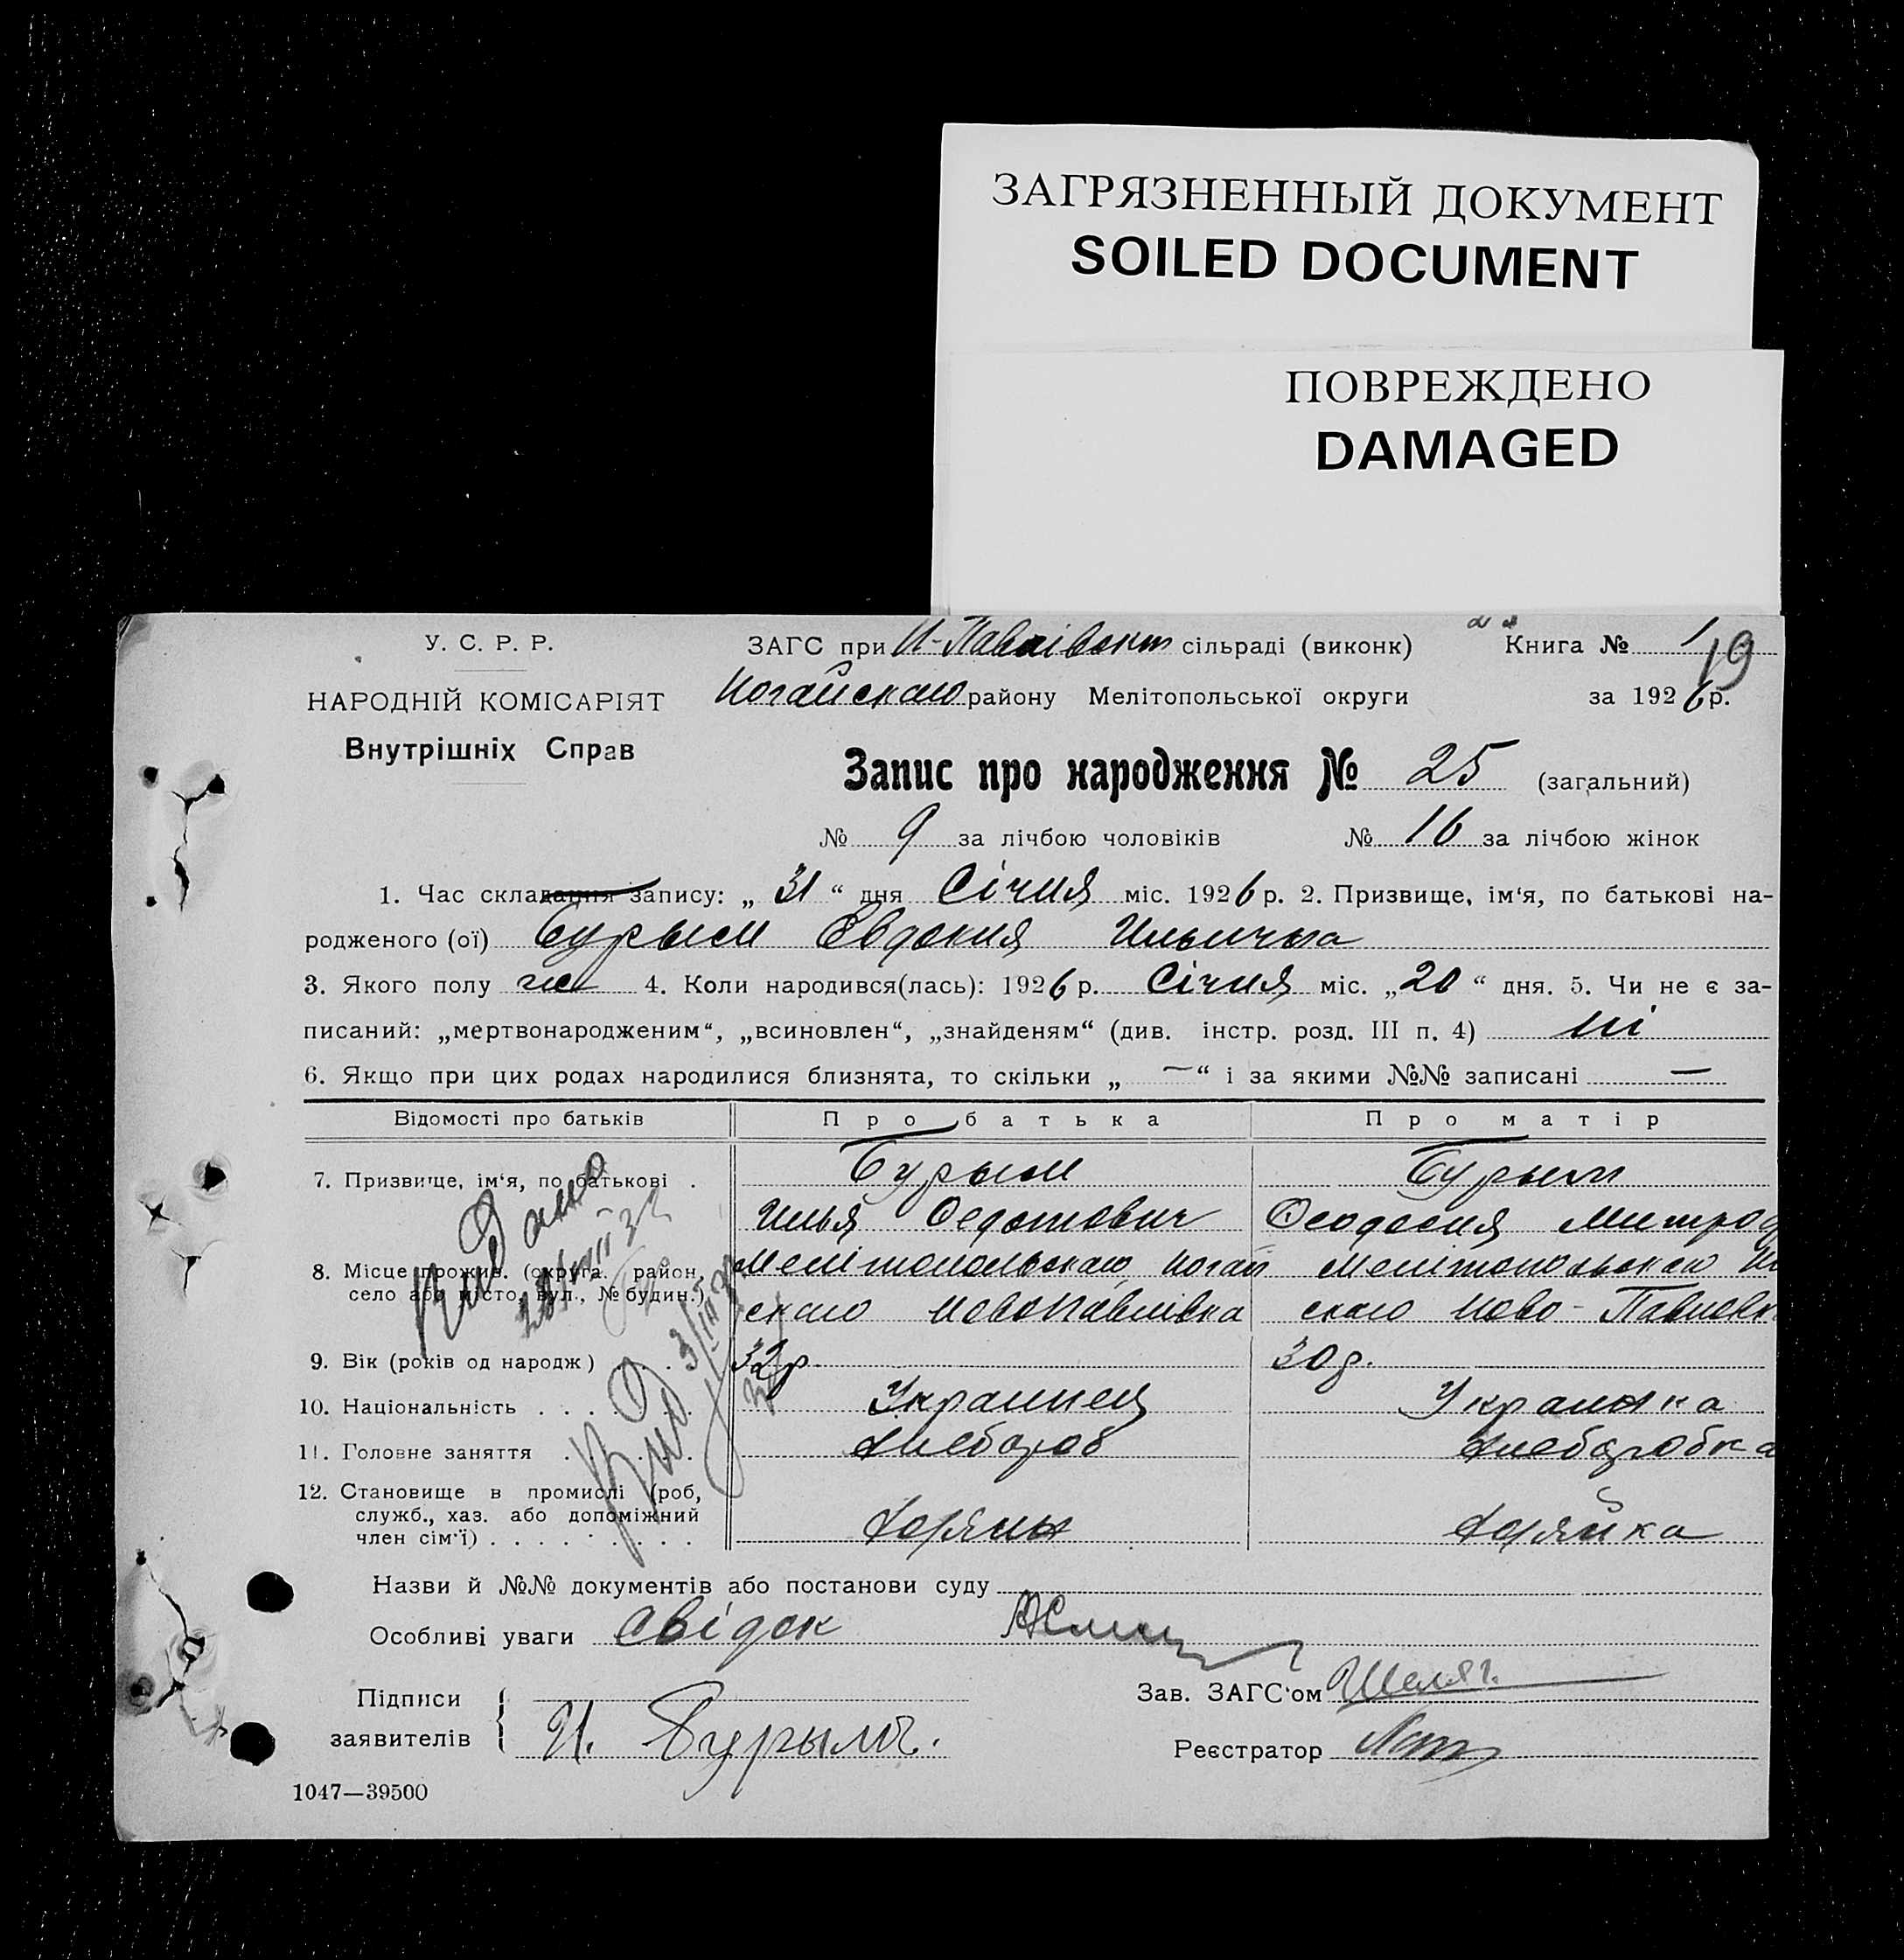 ЗАГРЯЗНЕННЫЙ ДОКУМЕНТ
SOILED DOCUMENT
ПОВРЕЖДЕНО
DAMAGED
У. С. Р. Р. ЗАГС при Н-Павлівскт сільраді (виконк) Книга № 1
19
НАРОДНІЙ КОМІСАРІЯТ Ногайскаго району Мелітопольської округи за 1926 р.
Внутрішніх Справ
Запис про народження № 25 (загальний)
№ 9 за лічбою чоловіків № 16 за лічбою жінок
1. Час складання запису: „ 31 “ дня Січня міс. 1926 р. 2. Призвище, ім‘я, по батькові на-
родженого (ої) Бурым Евдокия Ильична
3. Якого полу жен 4. Коли народився(лась): 1926 р. Січня міс. „20 “ дня. 5. Чи не є за-
писаний: „мертвонародженим“, „всиновлен“, „знайденям“ (див. інстр. розд. III п. 4) ні
6. Якщо при цих родах народилися близнята, то скільки „ — “ і за якими №№ записані —
Відомості про батьків Про батька Про матір
7. Призвище, ім‘я, по батькові . Бурым Бурым
Илья Федотович Феодосия Митроф
8. Місце прожив. (округа район, Мелітопольскаго Ногай Мелітопольскаго Но
село або місто, вул., № будин.) скаго Новопавлівка скаго Ново-Павловк
9. Вік (років од народж) 32р. 30р.
10. Національність . . . . Украинец Украинка
11. Головне заняття . . . . Хлебороб Хлеборобка
12. Становище в промислі (роб,
служб., хаз. або допоміжний
член сім‘ї) . . . . . . . . . Хозяин Хозяйка
Назви й №№ документів або постанови суду
Особливі уваги Свідок
Підписи Зав. ЗАГС‘ом
заявителів { И. Бурымъ. Реєстратор
1047—39500